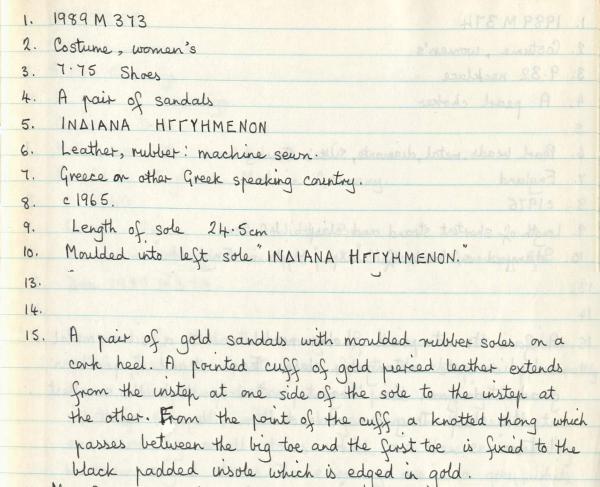 1. 1989 M 373
2. Costume, women's
3. 7.75 Shoes
4. A pair of sandals
5. ΙΝΔΙΑΝΑ ΗΓΓΥΗΜΕΝΟΝ
6. Leather, rubber: machine sewn.
7. Greece or other Greek speaking country.
8. c1965.
9. Length of sole 24.5cm
10. Moulded into left sole "ΙΝΔΙΑΝΑ ΗΓΓΥΗΜΕΝΟΝ."
13.
14.
15. A pair of gold sandals with moulded rubber soles on a
cork heel. A pointed cuff of gold pierced leather extends
from the instep at one side of the sole to the instep at
the other. From the point of the cuff a knotted thong which
passes between the big toe and the first toe is fixed to the
black padded insole which is edged in gold.